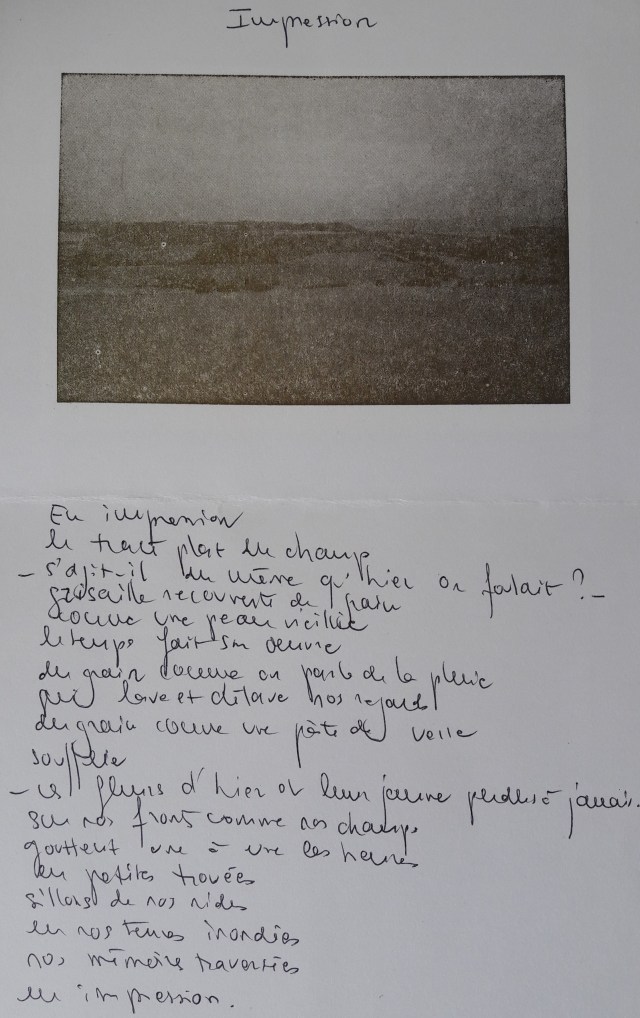 Impression
En impression
le tract plat du champ
– s'agit-il du même qu'hier on foulait ? –
grisaille recouverte de grain
comme une peau vieillie
le temps fait son oeuvre
du grain comme on parle de la pluie
qui lave et délave nos regards
du grain comme une pâte de verre
soufflée
– ces fleurs d'hier et leur jaune perdues à jamais.
sur nos fronts comme nos champs
gouttent une à une les heures
en petites trouées
sillons de nos rides
en nos terres inondées
nos mémoires traversées
en impression.